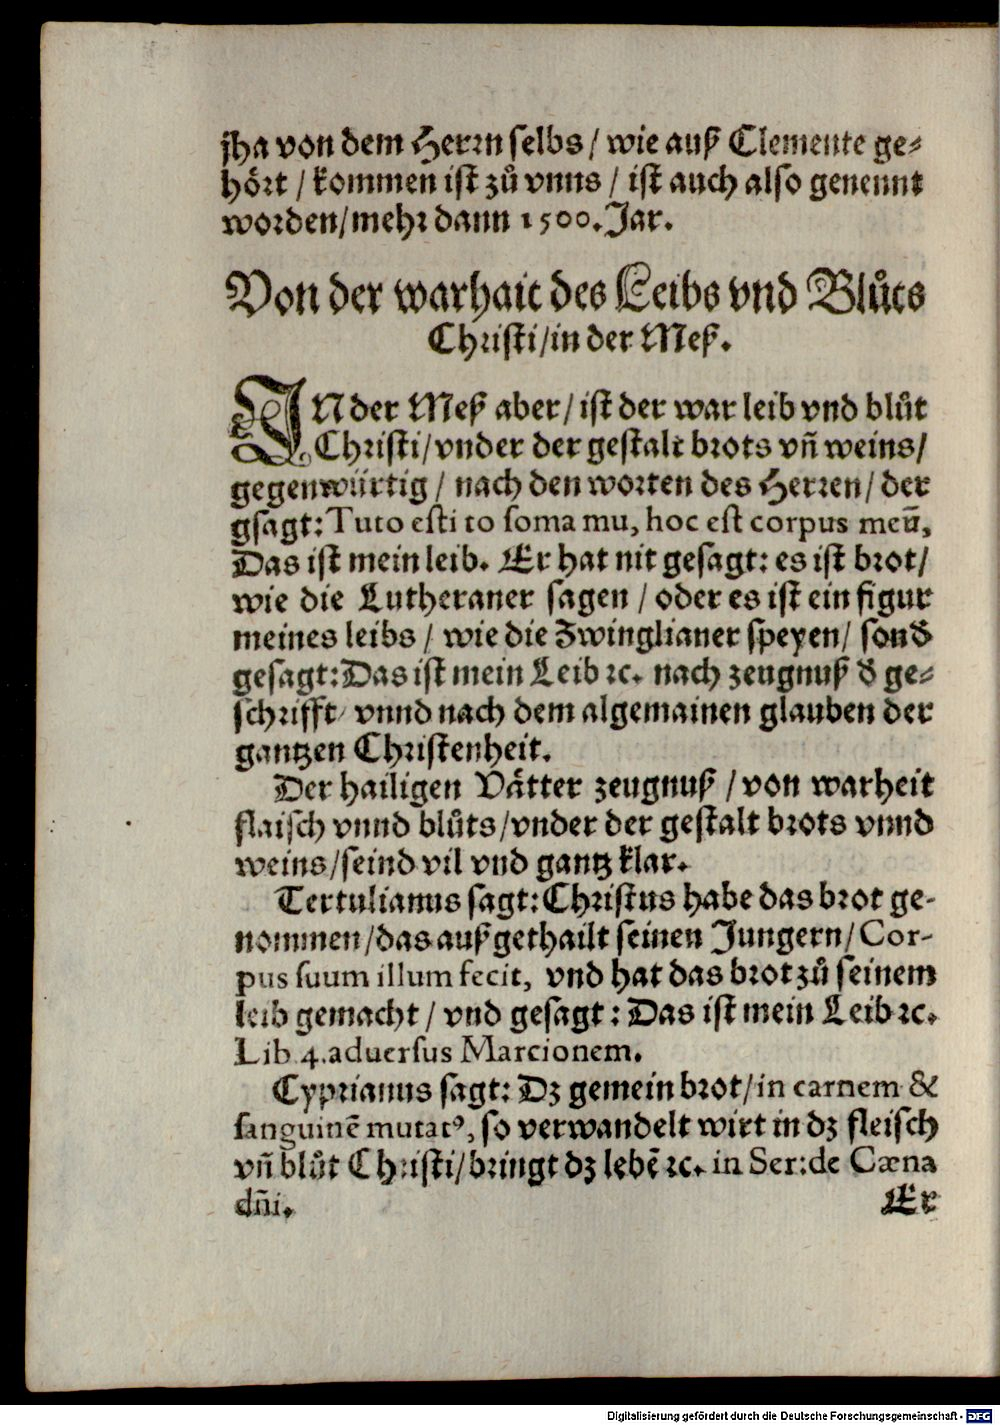 jha von dem Herꝛn selbs / wie auß Clemente ge⸗
hoͤꝛt / kommen ist zuͦ vnns / ist auch also genennt
woꝛden / mehꝛ dann 1500. Jar.
Von der warhait des Leibs vnd Bluͦts
Chꝛisti / in der Meß.
IN der Meß aber / ist der war leib vnd bluͦt
Chꝛisti / vnder der gestalt bꝛots vñ weins /
gegenwürtig / nach den woꝛten des Herꝛen / der
gsagt: Tuto esti to soma mu, hoc est corpus meū,
Das ist mein leib. Er hat nit gesagt: es ist bꝛot /
wie die Lutheraner sagen / oder es ist ein figur
meines leibs / wie die Zwinglianer speyen / sond̕
gesagt: Das ist mein Leib ꝛc. nach zeugnuß d̕ ge⸗
schꝛifft / vnnd nach dem algemainen glauben der
gantzen Chꝛistenheit.
Der hailigen Vaͤtter zeugnuß / von warheit
flaisch vnnd bluͦts / vnder der gestalt bꝛots vnnd
weins / seind vil vnd gantz klar.
Tertulianus sagt: Chꝛistus habe das bꝛot ge-
nommen / das außgethailt seinen Jungern / Cor-
pus suum illum fecit, vnd hat das bꝛot zuͦ seinem
leib gemacht / vnd gesagt: Das ist mein Leib ꝛc.
Lib. 4. aduersus Marcionem.
Cypꝛianus sagt: Dz gemein bꝛot / in carnem &
sanguinē mutatꝰ, so verwandelt wirt in dz fleisch
vñ bluͦt Chꝛisti / bꝛingt dz lebē ꝛc. in Ser: de Cæna
dñi.
Er
Digitalisierung gefördert durch die Deutsche Forschungsgemeinschaft - DFG